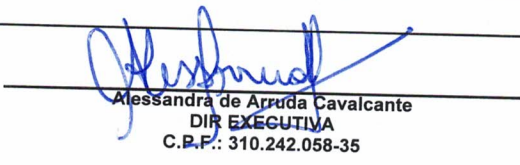 Alessandra de Arruda Cavalcante
DIR EXECUTIVA
C.P.F.: 310.242.058-35